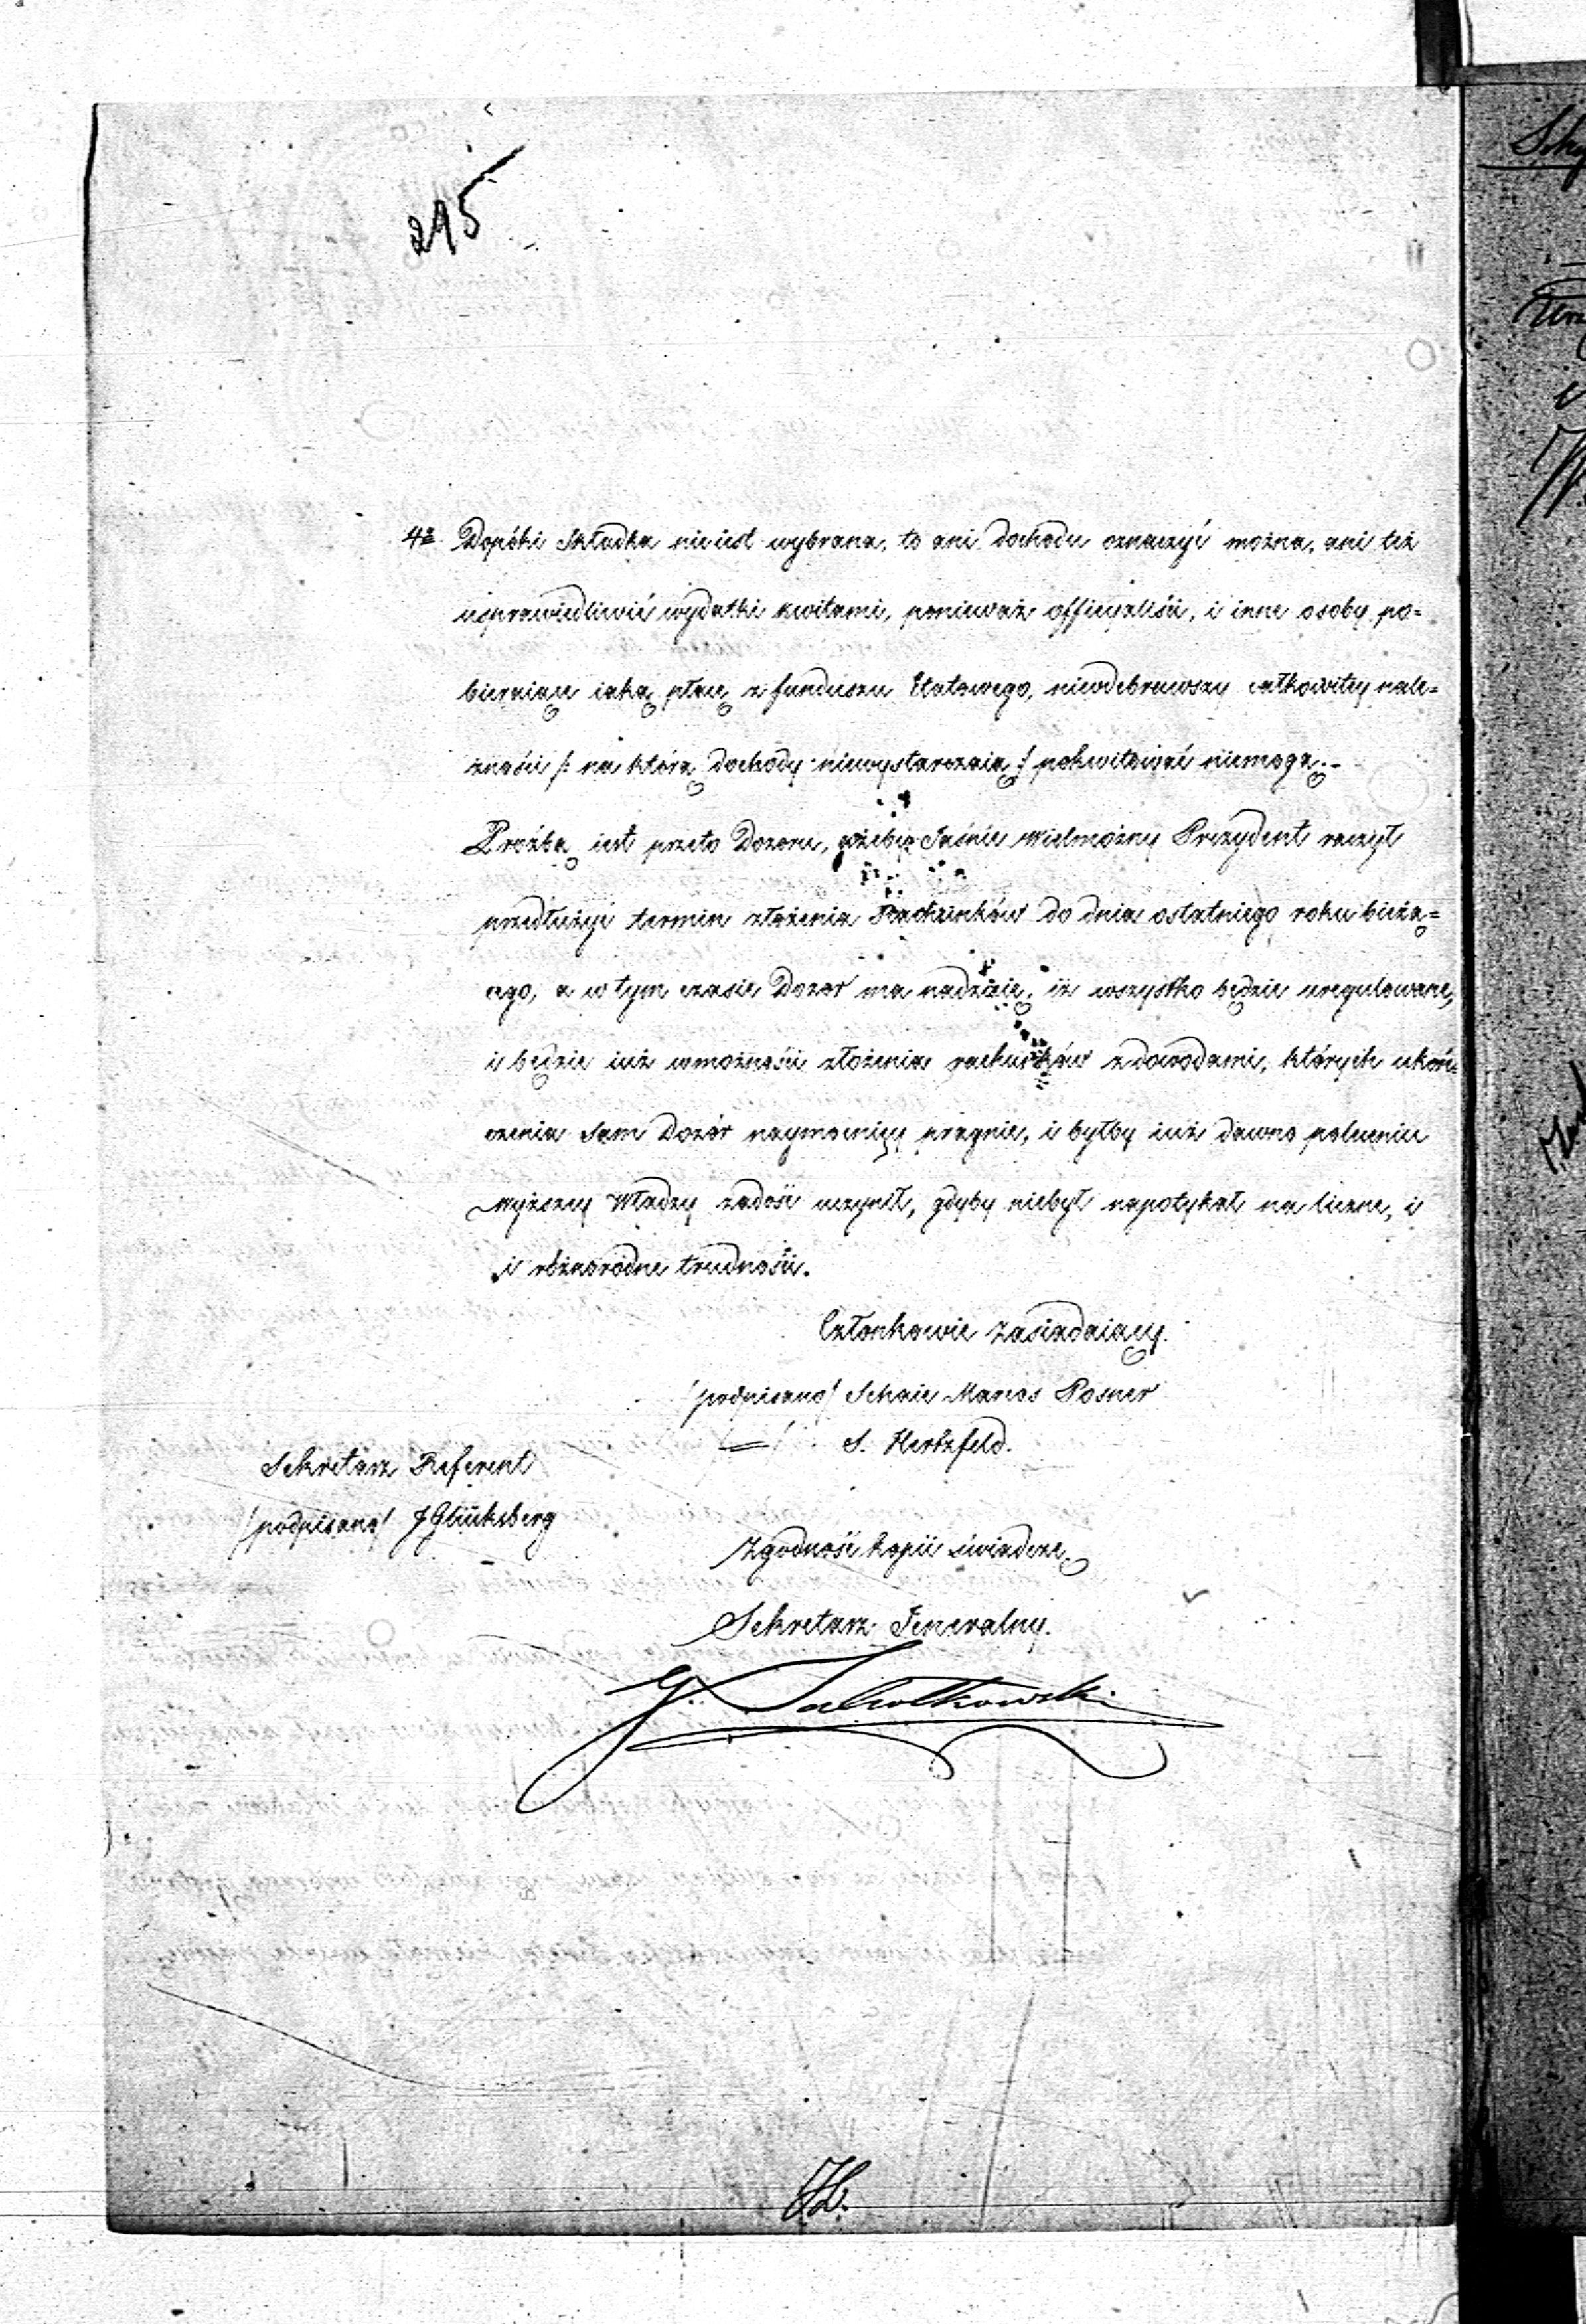 215
4º Dopóki Składka nie iest wybrana, to ani dochodu oznaczyć można, ani też
usprawiedliwić wydatki kwitami, ponieważ officyaliści, i inne osoby po=
bieraiące iaką płacę z funduszu Etatowego, nieodebrawszy całkowitey nale=
żności /: na którą dochody niewystarczaią :/ pokwitować niemogą.–
Prożbą iest przeto Dozoru, ażeby Jaśnie Wielmożny Prezydent raczył
przedłużyć termin złożenia Rachunków do dnia ostatniego roku bieżą=
cego, a w tym czasie Dozor ma nadzieię, iż wszystko będzie uregulowane,
i będzie iuż w możności złożenia rachunków z dowodami, których ukoń=
czenia sam Dozór naymocnięy pragnie, i byłby iuż dawno poleceniu
Wyższey Władzy zadość uczynił, gdyby niebył napotykał na liczne, i
i różnorodne trudności.
Członkowie zasiadaiący.
/podpisano/ Schaie Marcos Posner
/ = / S. Hertzfeld.
Sekretarz Referent
/podpisano/ J Glüksberg
Zgodność kopii świadczę
Sekretarz Jeneralny.